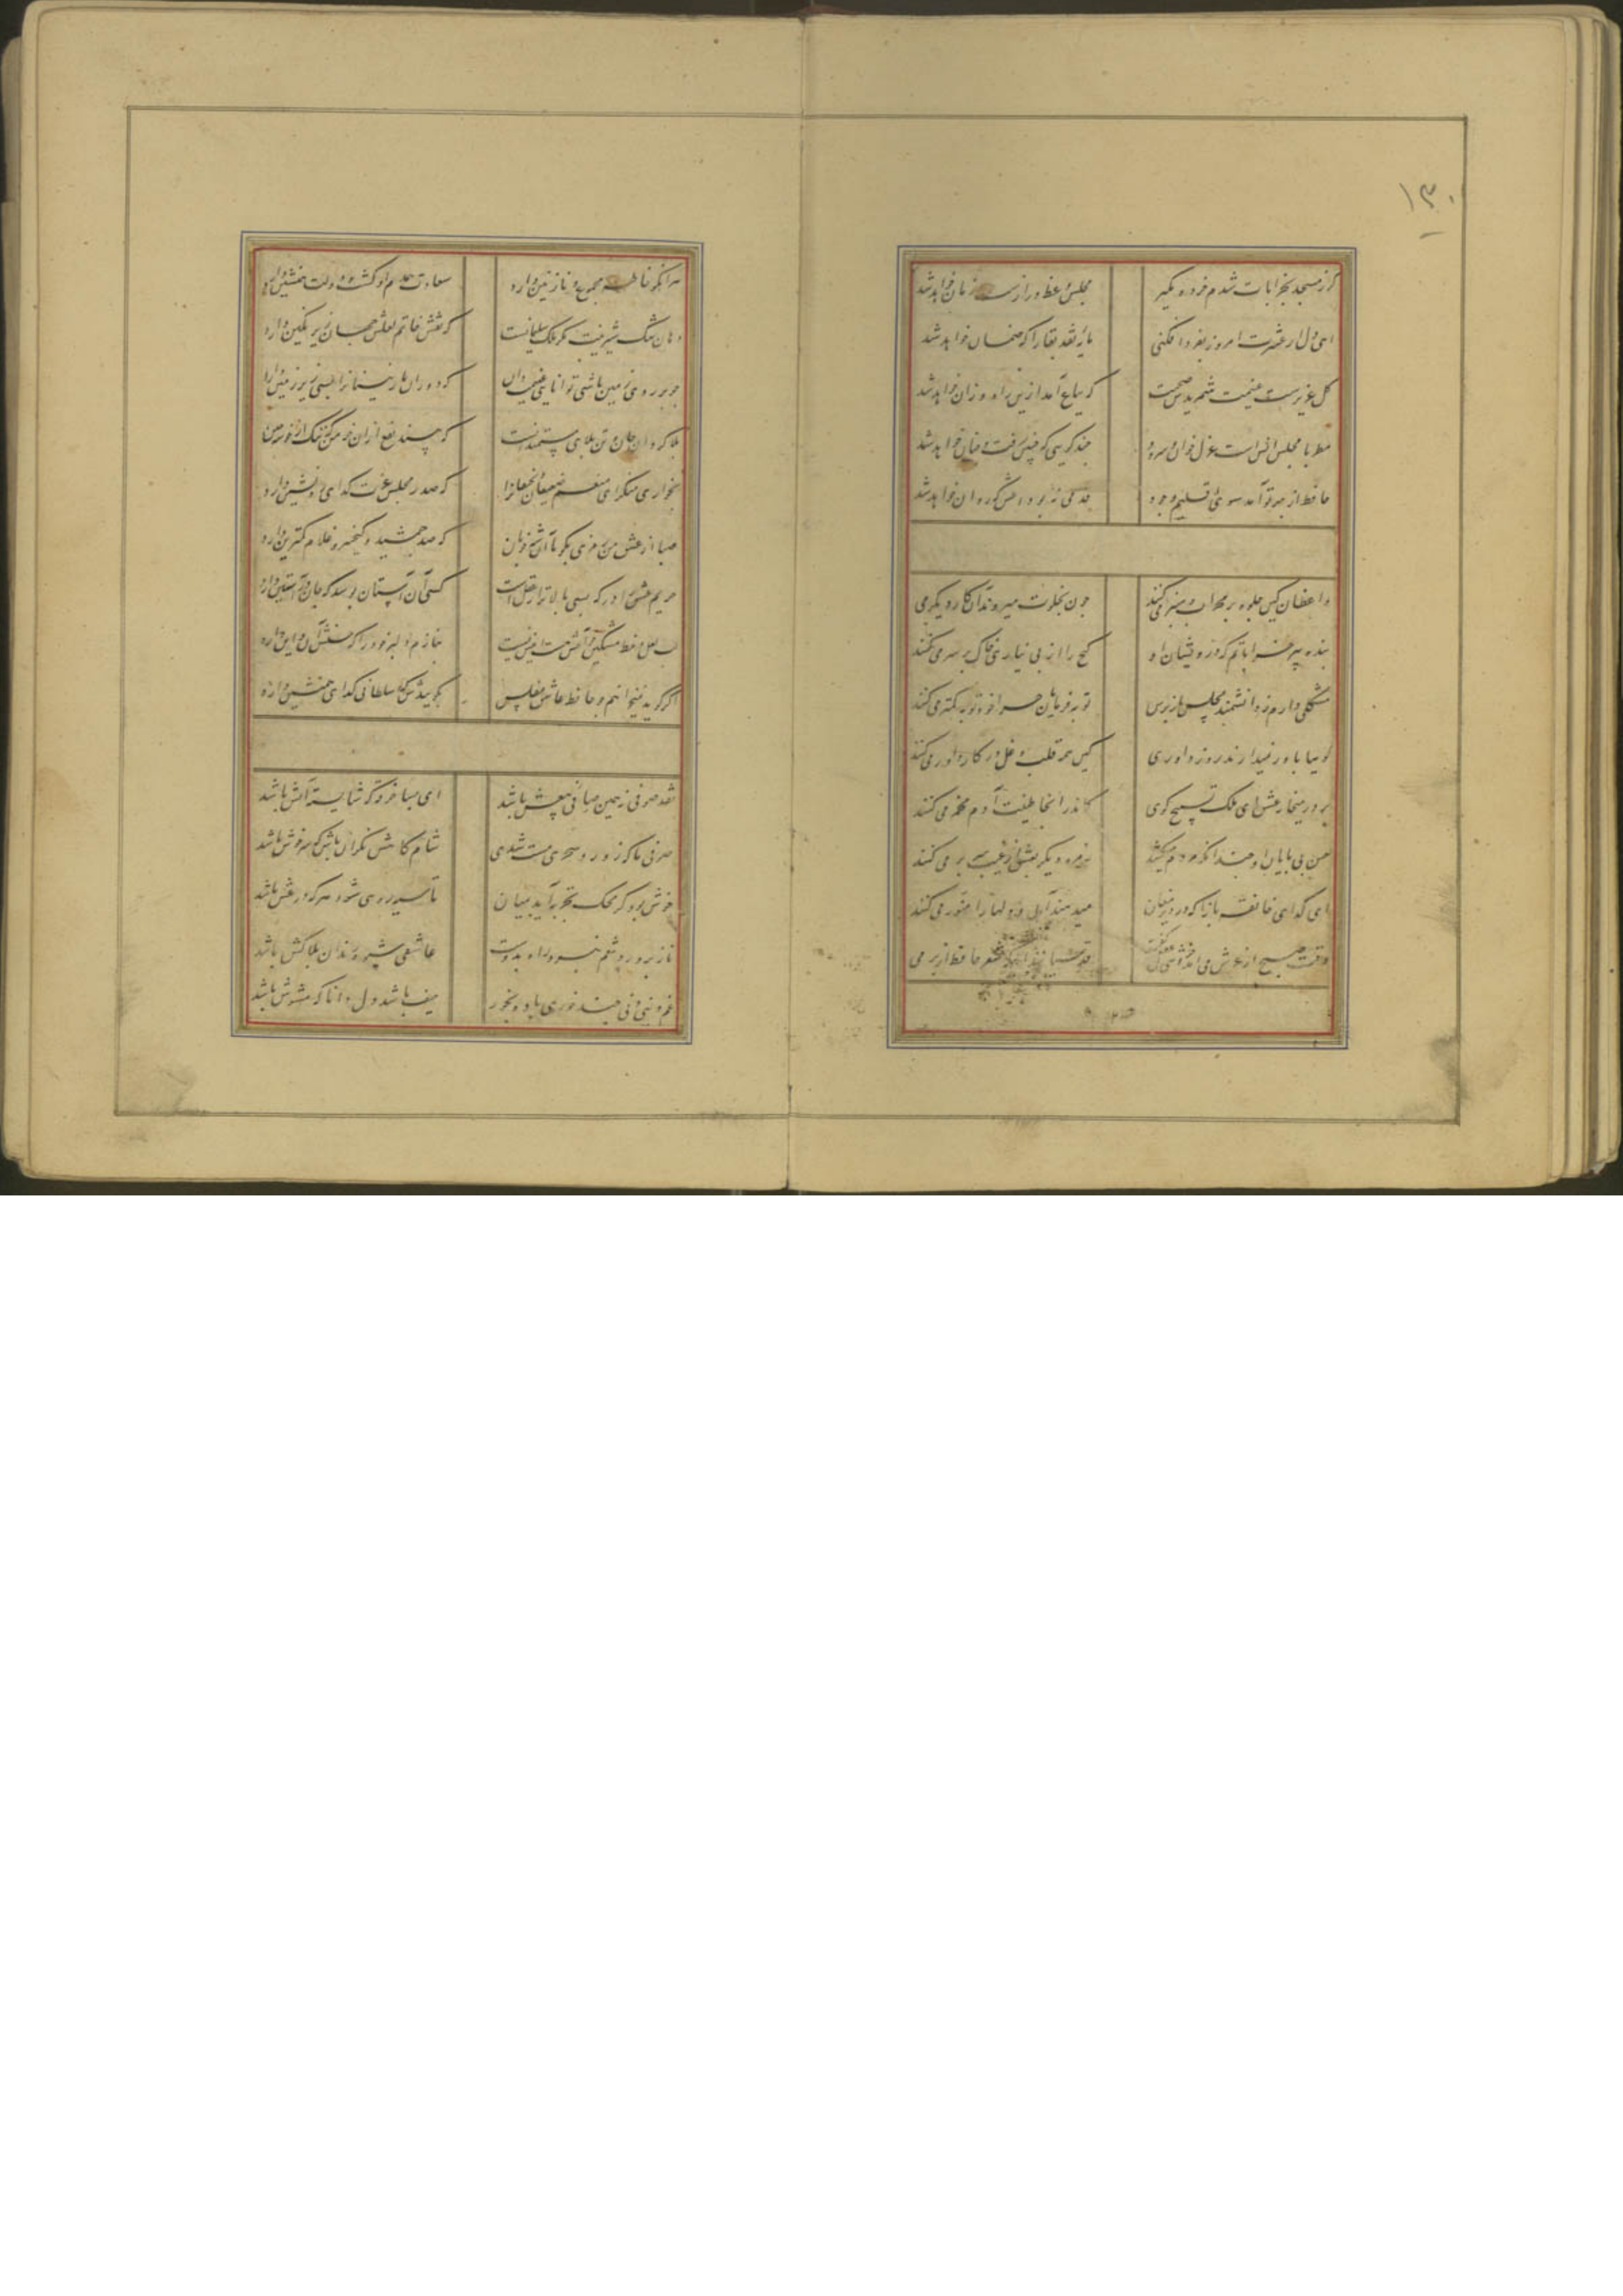 ۱۳۰
گر ز مسجد بخرابات شدم خرده مگیر مجلس وعظ درازست و زمان خواهد شد
ای دل ار عشرت امروز بفردا فکنی مایه نقد بقا را که ضمان خواهد شد
کل عزیزست غنیمت شمریدش صحبت که بباغ آمد ازین راه و زان خواهد شد
مطربا مجلس انس است غزل خوان و سرود چند کویی که چنین رفت و چنان خواهد شد
حافظ از بهر تو آمد سوی اقلیم وجود قدمی نه بوداعش که روان خواهد شد
واعظان کین جلوه بر محراب و منبر می کنند چون بخلوت میروند آن کار دیگر می
بنده پیر خراباتم که درویشان او کنج را از بی نیازی خاک بر سر می کنند
مشکلی دارم ز دانشمند مجلس باز پرس توبه فرمایان چرا خود توبه کمتر می کنند
کوییا باور نمیدارند روز داوری کین همه قلب و دغل در کار داور می کنند
بر در میخانه عشق ای ملک تسبیح کوی کاندر انجا طینت آدم مخمر می کنند
حسن بی پایان او چندانکه مردم میکشد زمره دیگر بعشق از غیب سر بر می کنند
ای کدای خانقه بازا که در دیر مغان میدهند آبی و دلها را منور می کنند
وقت صبح از عرش می آمد خروشی عقل گفت قدسیان شعر حافظ از بر می
هر آنکو خاطر مجموع و یار نازنین دارد سعادت همدم او کشت و دولت همنشین دارد
دهان تنک شیرینت مکر ملک سلیمانست که نقش خاتم لعلش جهان زیر نکین دارد
چو بر روی زمین باشی توانایی غنیمت دان که دوران ناتوانیها بسی زیر زمین دارد
بلا کردان جان و تن دعای مستمندانست که بیند نفع از ان خرمن که ننک از خوشه چین
بخواری منکر ای منعم ضعیفان و نحیفانرا که صدر مجلس عزت کدای ره نشین دارد
صبا از عشق من رمزی بکو با آن شه خوبان که صد جمشید و کیخسرو غلام کمترین دارد
حریم عشق را درکه بسی بالاتر از عقل است کسی آن آستان بوسد که جان در آستین دارد
لب لعل و خط مشکین چو آنش هست و اینش نیست بنازم دلبر خود را که حسنش آن و این دارد
اگر کوید نمیخواهم چو حافظ عاشق مفلس بکوییدش که سلطانی کدای همنشین دارد
نقد صوفی نه همین صافی بیغش باشد ای بسا خرقه که شایسته آتش باشد
صوفی ما که ز ورد سحری مست شدی شام کاهش نکران باش که سرخوش باشد
خوش بود کر محک تجربه آید بمیان تا سیه روی شود هر که درو غش باشد
ناز پرورد تنعم نبرد راه بدوست عاشقی شیوه رندان بلاکش باشد
غم دنیی دنی چند خوری باده بخور حیف باشد دل دانا که مشوش باشد